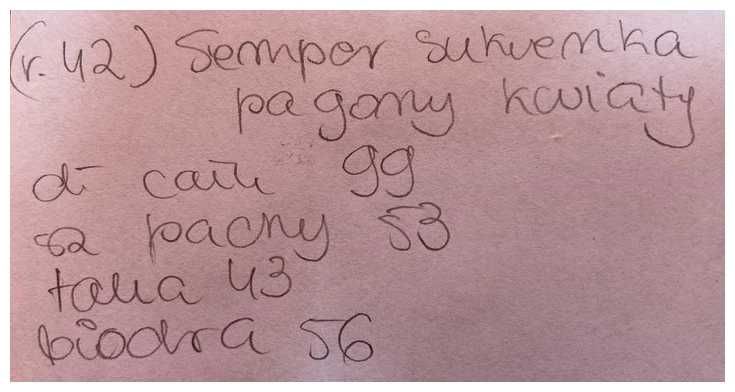 (r. 42) Semper sukienka
pagony kwiaty
dł całk 99
sz pachy 53
talia 43
biodra 56